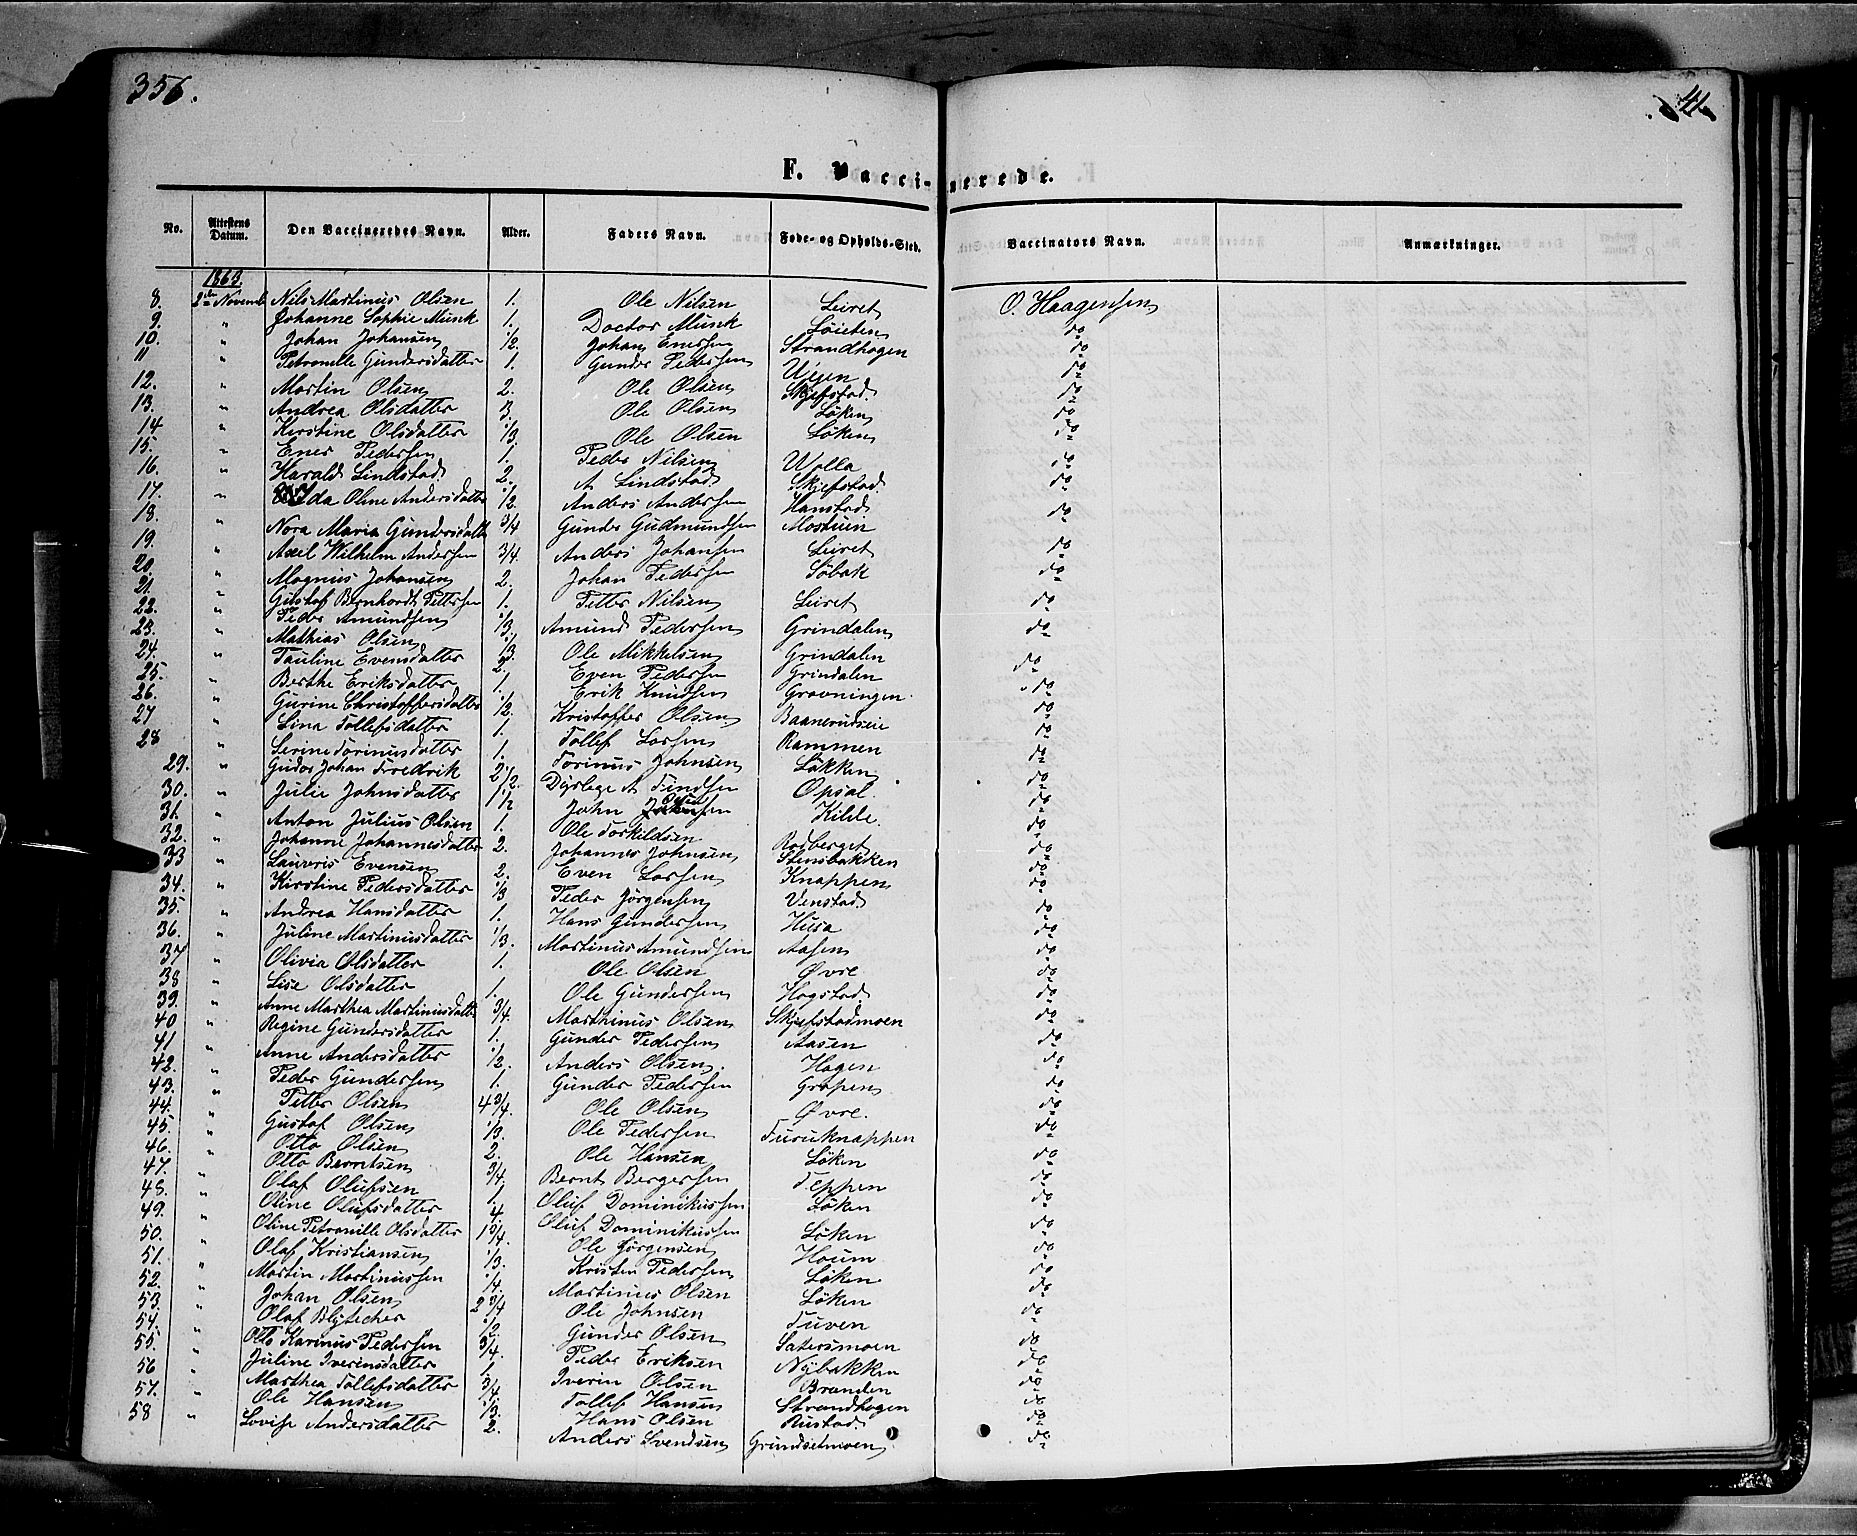 356.
F. Vacci-nerede.
No. Attestens Datum. Den Vaccineredes Navn. Alder. Faders Navn. Føde- og Opholds-Sted. Vaccinators Navn. Anmærkninger.
1863.
8. 2den Novemb. Nils Martinus Olsen 1. Ole Nilsen Leiret O. Haagensen
9. " Johanne Sophie Munk 1. Doctor Munk Løieten do
10. " Johan Johansen 1/2 Johan Enersen Strandhagen do
11 " Petronelle Gundersdatter 1. Gunder Pedersen Ugen do
12. " Martin Olsen 2. Ole Olsen Skjefstad do
13. " Andrea Olsdatter 3. Ole Olsen Løken do
14 " Kirstine Olsdatter 1/3 Ole Olsen Løken do
15. " Ener Pedersen 1. Peder Nilsen Wolla do
16. " Harald Lindstad 2. A Lindstad Skjefstad do
17. " Ida Oline Andersdatter 1/2 Anders Andersen Hanstad do
18. " Nora Maria Gundersdatter 3/4 Gunder Gudmundsen Mostuin
19 " Axel Wilhelm Andersen 3/4. Anders Johansen Leiret do
20. " Magnus Johansen 2. Johan Pedersen Søbak do
21. " Gustaf Bernhardt Pettersen 1. Petter Nilsen Leiret do
22. " Peder Amundsen 1/3 Amund Pedersen Grindalen do
23. " Mathias Olsen 1/3. Ole Mikkelsen Grindalen do
24. " Pauline Evensdatter 2. Even Pedersen Grindalen do
25. " Berthe Eriksdatter 1. Erik Knudsen Gravningen do
26. " Gurine Christoffersdatter 1/2. Kristoffer Olsen Baanerudseie do
27 " Lina Tollefsdatter 1. Tollef Larsen Rammen do
28 " Serine Torinusdatter 1. Torinus Johnsen Løkken do
29. " Gudor Johan Fredrik 2 1/2. Dyrlege A Findsen Opsal do
30. " Julie Johnsdatter 1 1/2 John Kilde do
31. " Anton Julius Olsen 1. Ole Torkildsen Rodberget do
32. " Johanne Johannesdatter 2. Johannes Johnsen Stensbakken do
33 " Lauvris Evensen 2. Even Larsen Knappen do
34. " Kirstine Pedersdatter 1/3 Peder Jørgensen Venstad do
35. " Andrea Hansdatter 1. Hans Gundersen Husa do
36. " Juline Martinusdatter 1/3. Martinus Amundsen Aasen do
37 " Olivia Olsdatter 1. Ole Olsen Øvre do
38 " Lise Olsdatter 1. Ole Gundersen Hagstad do
39. " Anne Marthea Martinusdatter 3/4. Marthinus Olsen Skjefstadmoen do
40 " Regine Gundersdatter 1. Gunder Pedersen Aasen do
41 " Anne Andersdatter 1/2. Anders Olsen Hagen do
42. " Peder Gundersen 1. Gunder Pedersen Grapen do
43. " Petter Olsen 4 3/4. Ole Olsen Øvre. do
44. " Gustaf Olsen 1/3. Ole Pedersen Furuknappen do
45. " Otto Olsen 2. Ole Hansen Løken do
46. " Otto Berntsen 3/4. Bernt Bergersen Teppen do
47. " Olaf Olufsen 1. Oluf Dominikussen Løken do
48. " Oline Olufsdatter 4 Oluf Dominikussen Løken do
49. " Oline Petronille Olsdatter 1 3/4. Ole Jørgensen Houm do
50. " Olaf Kristiansen 1/3. Kristen Pedersen Løken do
51. " Martin Martinussen 1/4. Martinus Olsen Løken do
52. " Johan Olsen 2 3/4 Ole Johnsen Tuven do
53. " Olaf Blytecher 1/2 Gunder Olsen Satersmoen do
54. " Otto Karinus Pedersen 3/4. Peder Eriksen Nybakken do
55. " Juline Iverinsdatter 1. Iverin Olsen Branden do
56 " Marthea Tollefsdatter 3/4. Tollef Hansen Strandhagen do
57. " Ole Hansen 1/3. Hans Olsen Rustad do
58 " Lovise Andersdatter 2. Anders Svendsen Grundsetmoen do